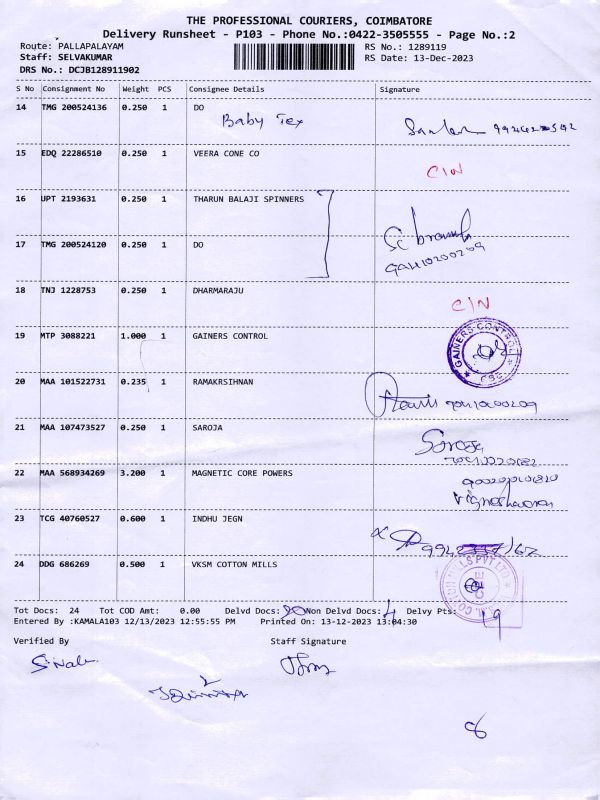 THE PROFESSIONAL COURIERS, COIMBATORE
Delivery Runsheet - P103 - Phone No.:0422-3505555 - Page No.:2
Route: PALLAPALAYAM RS No.: 1289119
Staff: SELVAKUMAR RS Date: 13-Dec-2023
DRS No.: DCJB128911902
S No Consignment No Weight PCS Consignee Details Signature
14 TMG 200524136 0.250 1 DO
Baby Tex
15 EDQ 22286510 0.250 1 VEERA CONE CO
C/N
16 UPT 2193631 0.250 1 THARUN BALAJI SPINNERS
17 TMG 200524120 0.250 1 DO
18 TNJ 1228753 0.250 1 DHARMARAJU
C/N
19 MTP 3088221 1.000 1 GAINERS CONTROL
GAINERS CONTROL
20 MAA 101522731 0.235 1 RAMAKRSIHNAN
21 MAA 107473527 0.250 1 SAROJA
Saroja
22 MAA 568934269 3.200 1 MAGNETIC CORE POWERS
Vigneshwaran
23 TCG 40760527 0.600 1 INDHU JEGN
24 DDG 686269 0.500 1 VKSM COTTON MILLS
Tot Docs: 24 Tot COD Amt: 0.00 Delvd Docs: 20 Non Delvd Docs: 4 Delvy Pts: 19
Entered By :KAMALA103 12/13/2023 12:55:55 PM Printed On: 13-12-2023 13:04:30
Verified By Staff Signature
8